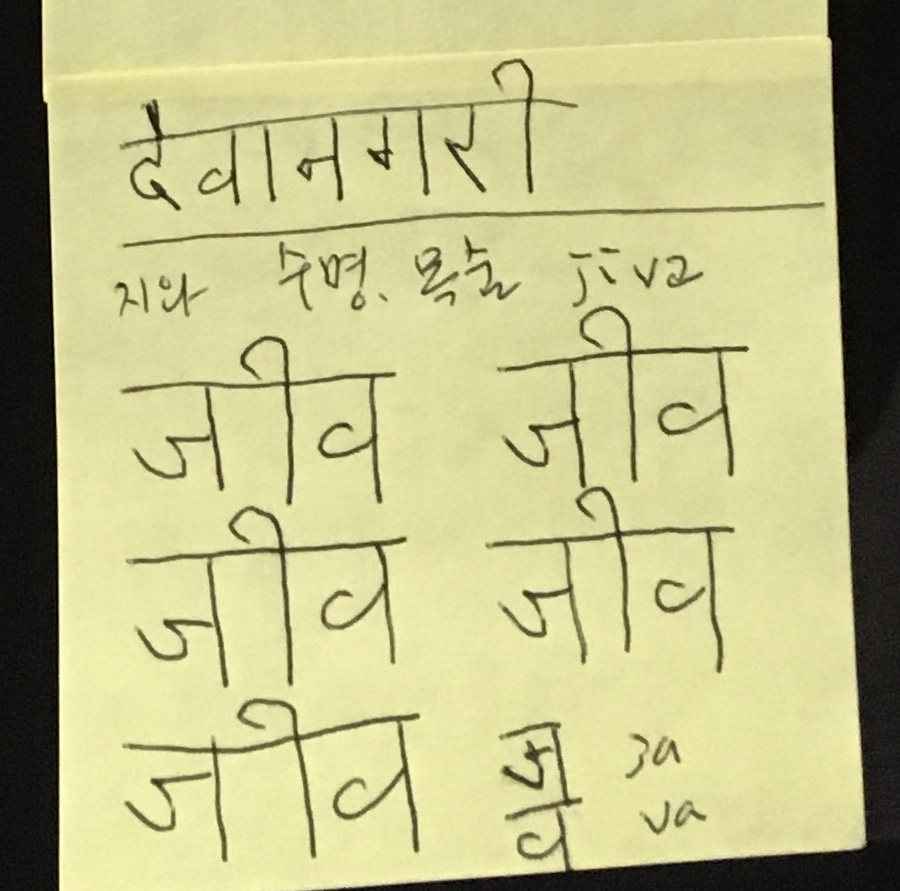 देवानगरी
지와 수명. 목숨 jīva
जीव जीव
जीव जीव
जीव ज ja
व va